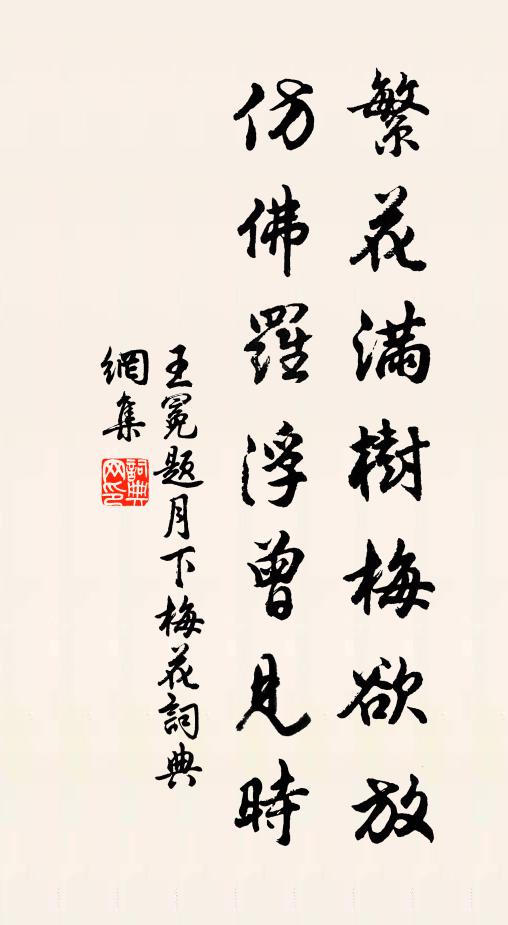 繁花滿樹梅欲放
仿佛羅浮曾見時
王冕题月下梅花詞典
網集
詞典
网印